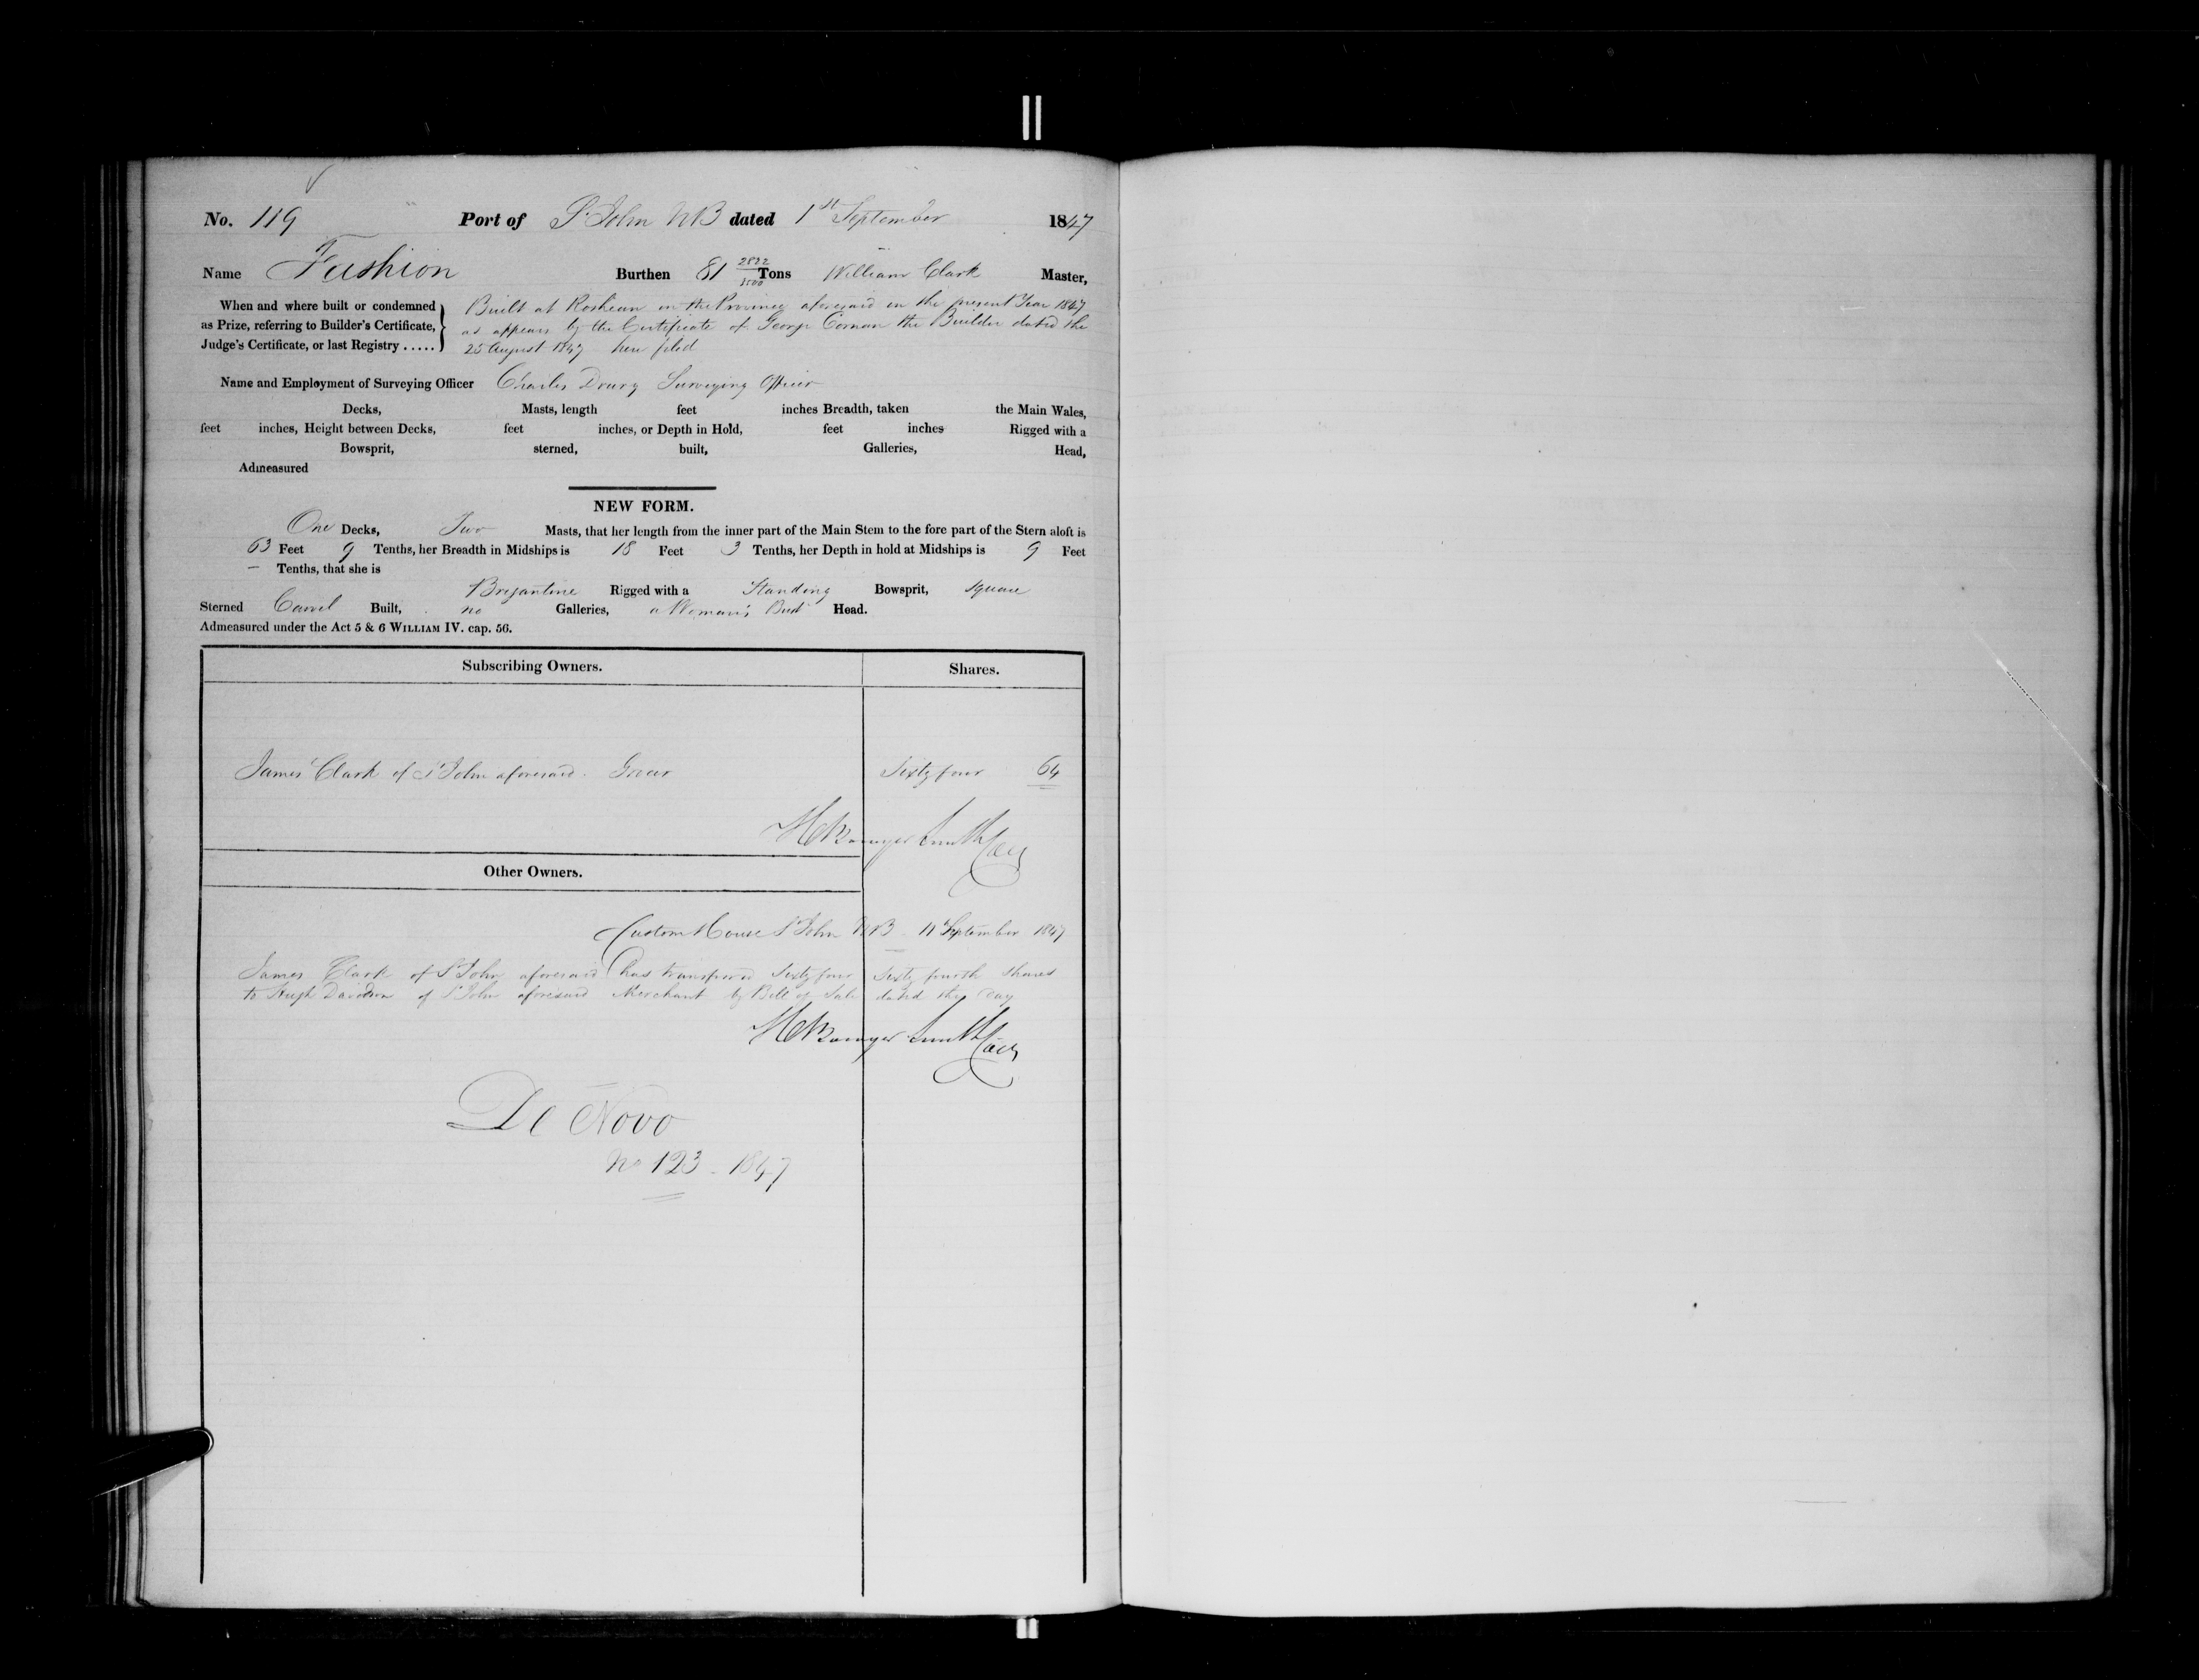 No. 119 Port of St John NB dated 1st September 1847
Name Fashion Burthen 81 2822/3500 Tons William Clark Master,
When and where built or condemned as Prize, referring to Builder's Certificate, Judge's Certificate, or last Registry .....
Built at in the Province aforesaid in the present Year 1847
as appears by the Certificate of George the Builder dated the
25 August 1847 here filed
Name and Employment of Surveying Officer Charles Drury Surveying Officer
Decks, Masts, length feet inches Breadth, taken the Main Wales,
feet inches, Height between Decks, feet inches, or Depth in Hold, feet inches Rigged with a
Bowsprit, sterned, built, Galleries, Head,
Admeasured
NEW FORM.
One Decks, Two Masts, that her length from the inner part of the Main Stem to the fore part of the Stern aloft is
63 Feet 9 Tenths, her Breadth in Midships is 18 Feet 3 Tenths, her Depth in hold at Midships is 9 Feet
— Tenths, that she is
Brigantine Rigged with a Standing Bowsprit, square
Sterned Carvel Built, no Galleries, a Woman's Bust Head.
Admeasured under the Act 5 & 6 WILLIAM IV. cap. 56.
Subscribing Owners. Shares.
James Clark of St John aforesaid. Grocer Sixty four 64
Smith
Other Owners.
Custom House St John NB 11 September 1847
James Clark of St John aforesaid has transferred Sixty four Sixty fourth shares
to Hugh Davidson of St John aforesaid Merchant by Bill of Sale dated this day
Smith
De Novo
No 123 - 1847